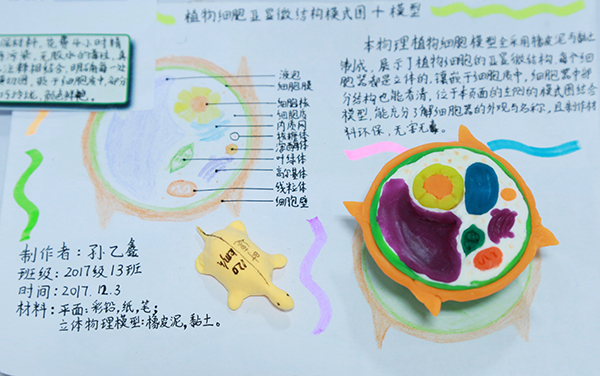 植物细胞亚显微结构模式图+模型
本物理植物细胞模型全采用橡皮泥与黏土
制成,展示了植物细胞的亚显微结构,每个细
胞器都是立体的,镶嵌于细胞质中,细胞器中部
分结构也能看清,位于本页面的左侧的模式图结合
模型,能充分了解细胞器的外观与名称,且制作材
料环保,无害无毒。
液泡
细胞膜
细胞核
细胞质
内质网
核糖体
溶酶体
叶绿体
高尔基体
线粒体
细胞壁
120
km/h
制作者:孙乙鑫
班级:2017级13班
时间:2017.12.3
材料:平面:彩铅,纸,笔;
立体物理模型:橡皮泥,黏土。